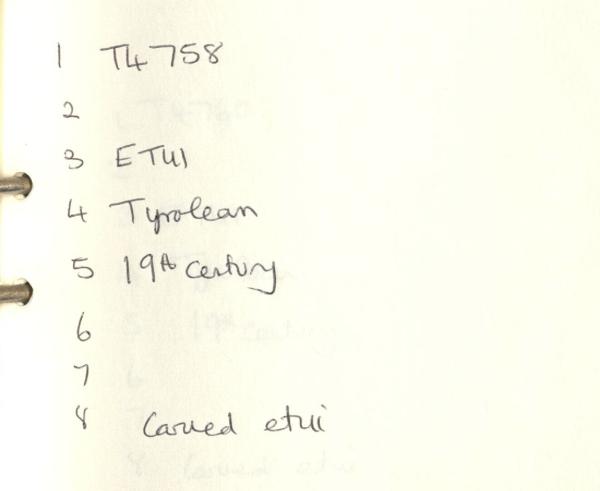 1 T4758
2
3 ETUI
4 Tyrolean
5 19th century
6
7
8 Carved etui